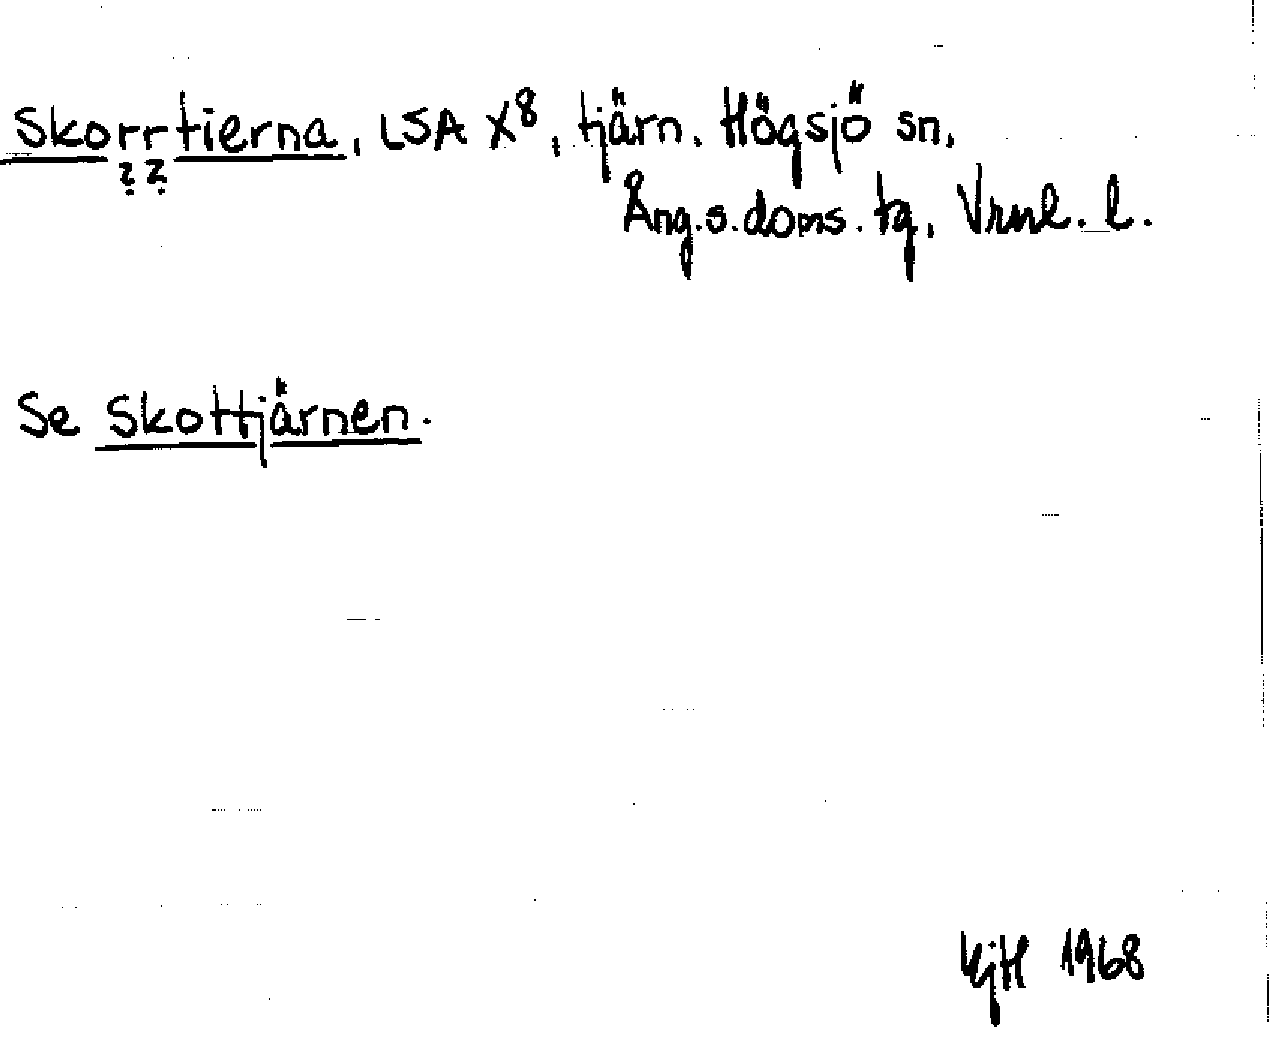 Skorrtierna, LSA X8, tjärn. Högsjö sn,
? ?
Ång.s.doms.tg, Vrnl. l.
Se Skottjärnen.
KjH 1968